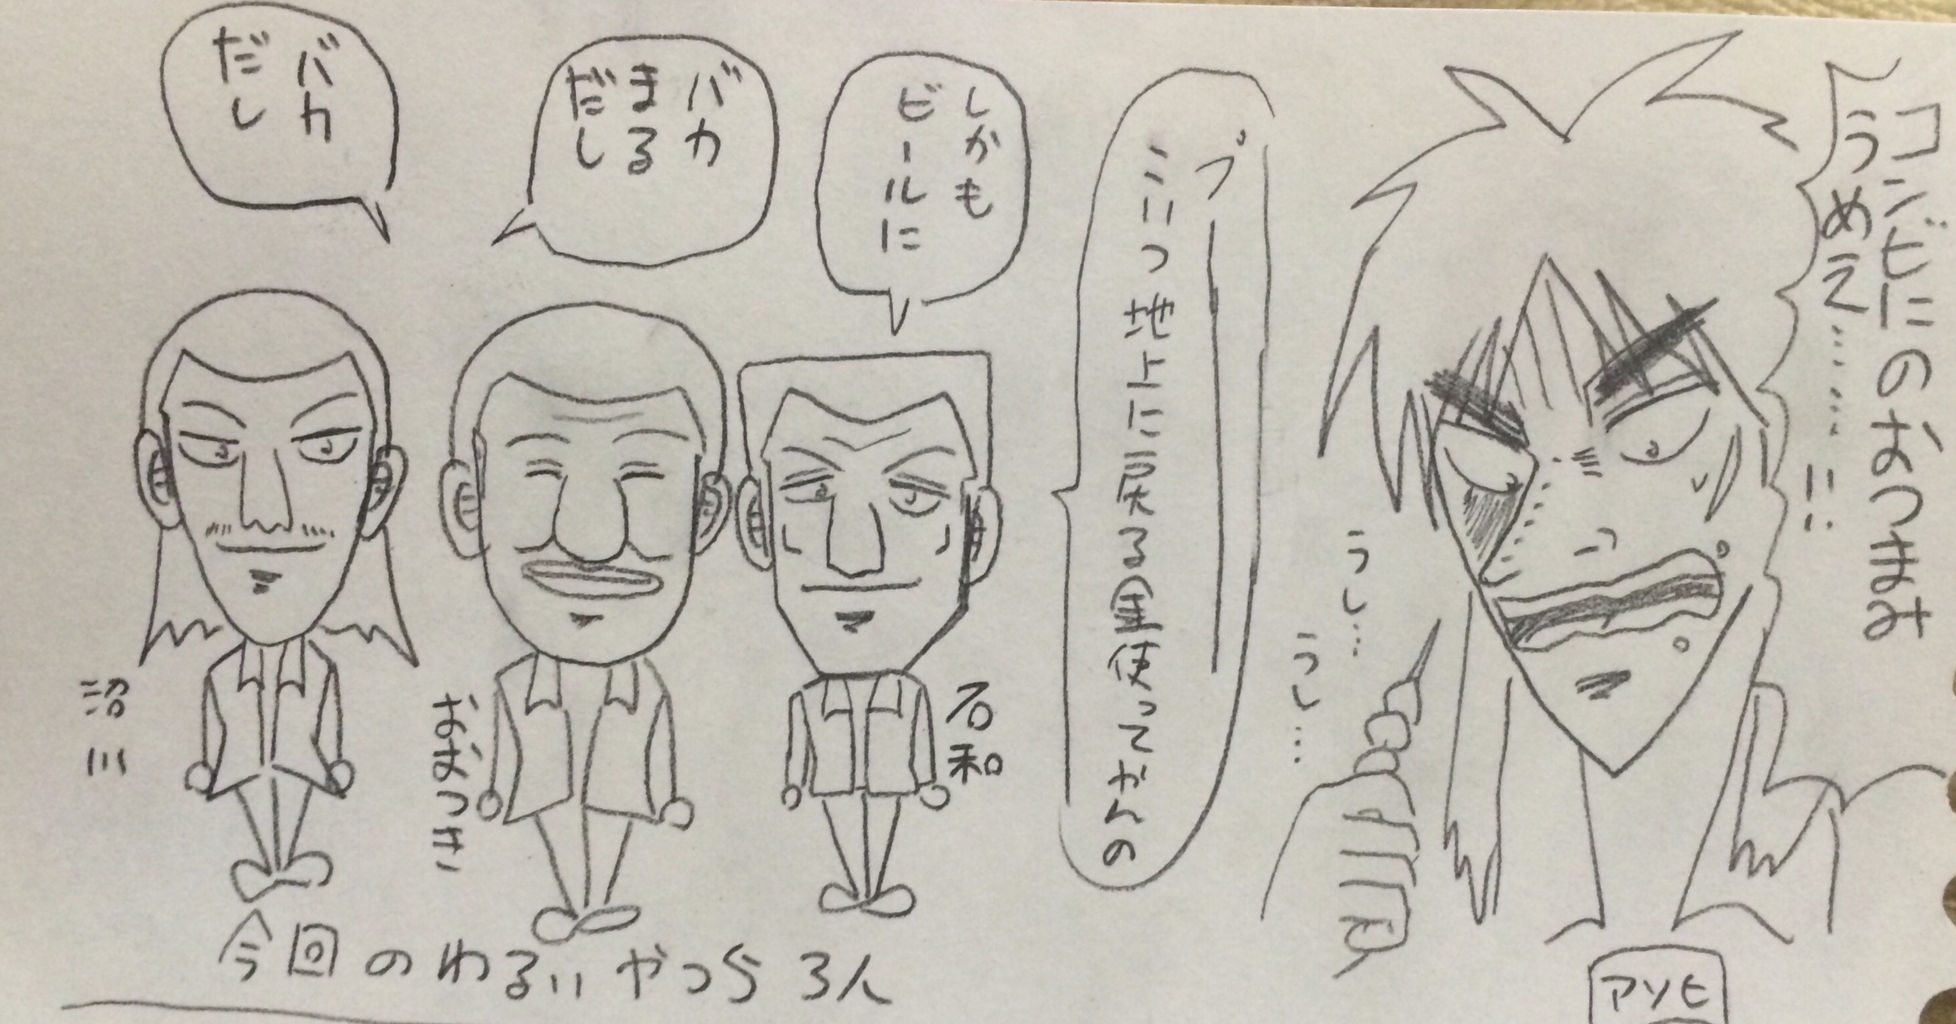 コンビニのおつまみ
うめえ………!!
うし…
うし…
アソヒ
プーーー
こいつ地上に戻る団使ってがんの
しかも
ビールに
バカ
まる
だし
バカ
だし
石和
おおつき
沼川
今回のわるいやつら3人